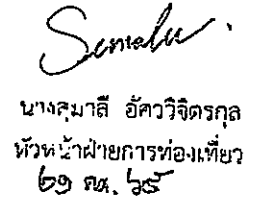 Sumalee
นางสุมาลี อัศววิจิตรกุล
หัวหน้าฝ่ายการท่องเที่ยว
๒๑ กค. ๖๕